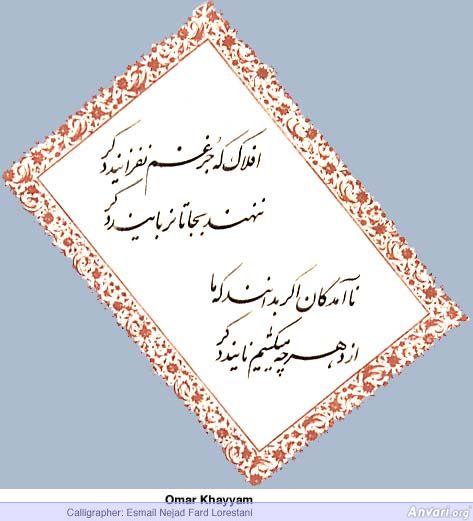 افلاک که جز غم نفزایند دگر
ننهند بجا تا نربایند دگر
ناآمدگان اگر بدانند که ما
از دهر چه میکشیم نایند دگر
Omar Khayyam
Calligrapher: Esmail Nejad Fard Lorestani
Anvari.org